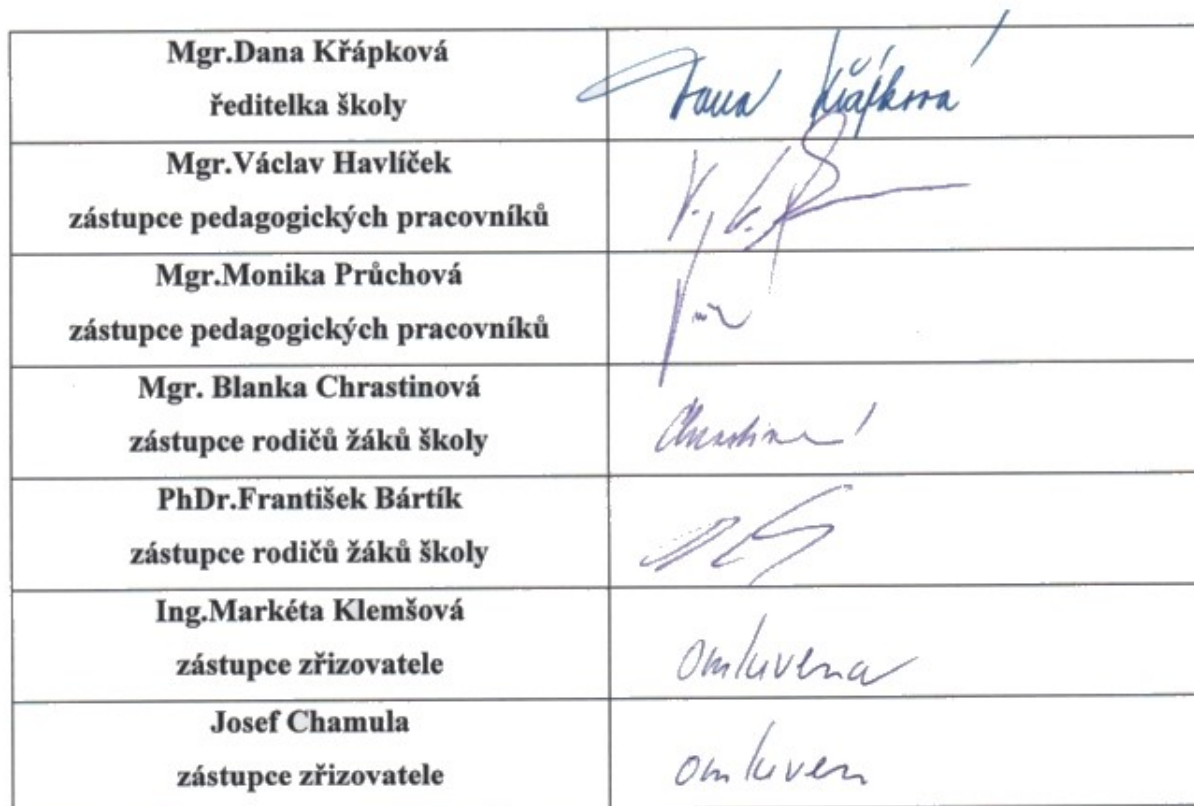 Mgr.Dana Křápková
ředitelka školy
Dana Křápková
Mgr.Václav Havlíček
zástupce pedagogických pracovníků
Mgr.Monika Průchová
zástupce pedagogických pracovníků
Mgr. Blanka Chrastinová
zástupce rodičů žáků školy
PhDr.František Bártík
zástupce rodičů žáků školy
Ing.Markéta Klemšová
zástupce zřizovatele
omluvena
Josef Chamula
zástupce zřizovatele
omluven